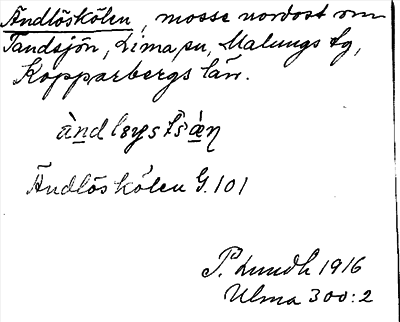 Ändlöskölen, mosse nordost om
Tandsjön, Lima sn, Malungs tg,
Kopparbergs län.
Ändlöskölen G. 101
P. Lundh 1916
Ulma 300:2